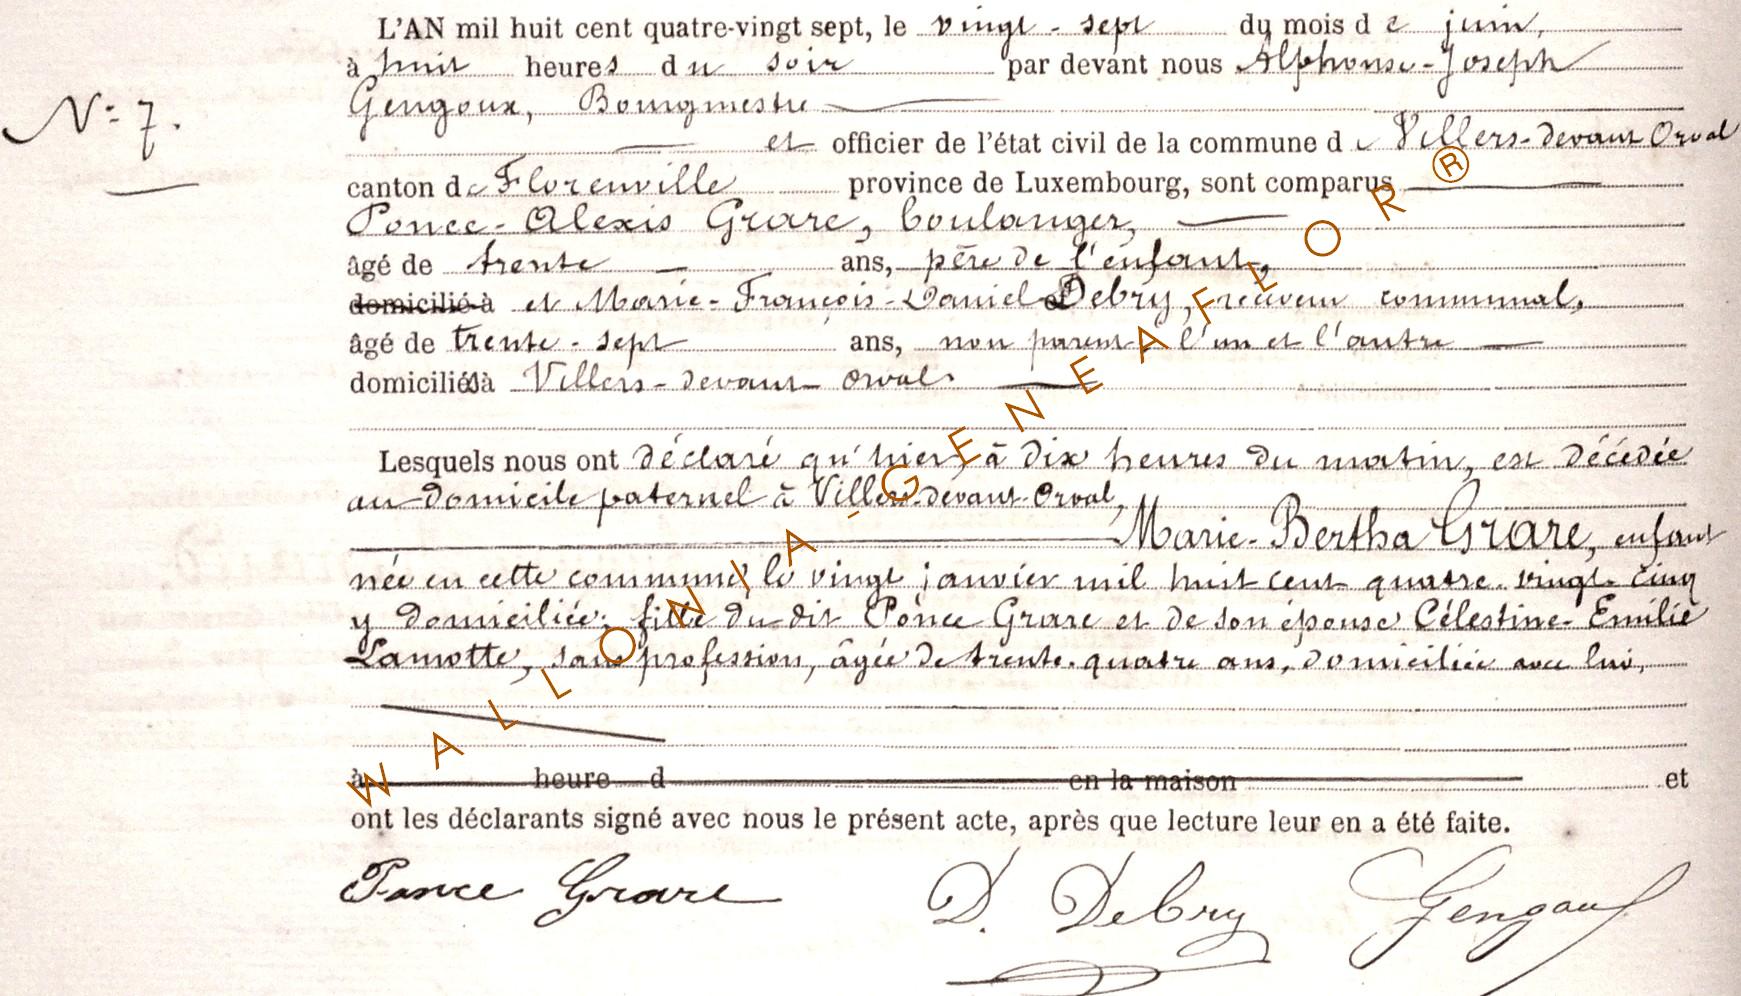 L'AN mil huit cent quatre-vingt sept, le vingt-sept du mois de juin,
à huit heures du soir par devant nous Alphonse-Joseph
Gengoux, Bourgmestre
N° 7.
et officier de l'état civil de la commune de Villers-devant Orval
canton de Florenville province de Luxembourg, sont comparus
Ponce-Alexis Grare, boulanger,
âgé de trente ans, père de l'enfant,
domicilié à et Marie-François-Daniel Debry, receveur communal,
âgé de trente-sept ans, non parent l'un et l'autre
domiciliés à Villers-devant-Orval.
Lesquels nous ont déclaré qu'hier, à dix heures du matin, est décédée
au domicile paternel à Villers-devant-Orval,
Marie-Bertha Grare, enfant
née en cette commune, le vingt janvier mil huit cent quatre-vingt-cinq
y domiciliée, fille du dit Ponce Grare et de son épouse Célestine-Emilie
Lamotte, sans profession, âgée de trente-quatre ans, domiciliée avec lui,
à heure d en la maison et
ont les déclarants signé avec nous le présent acte, après que lecture leur en a été faite.
Ponce Grare D. Debry Gengoux
WALLONIA-GENEAFLOR®